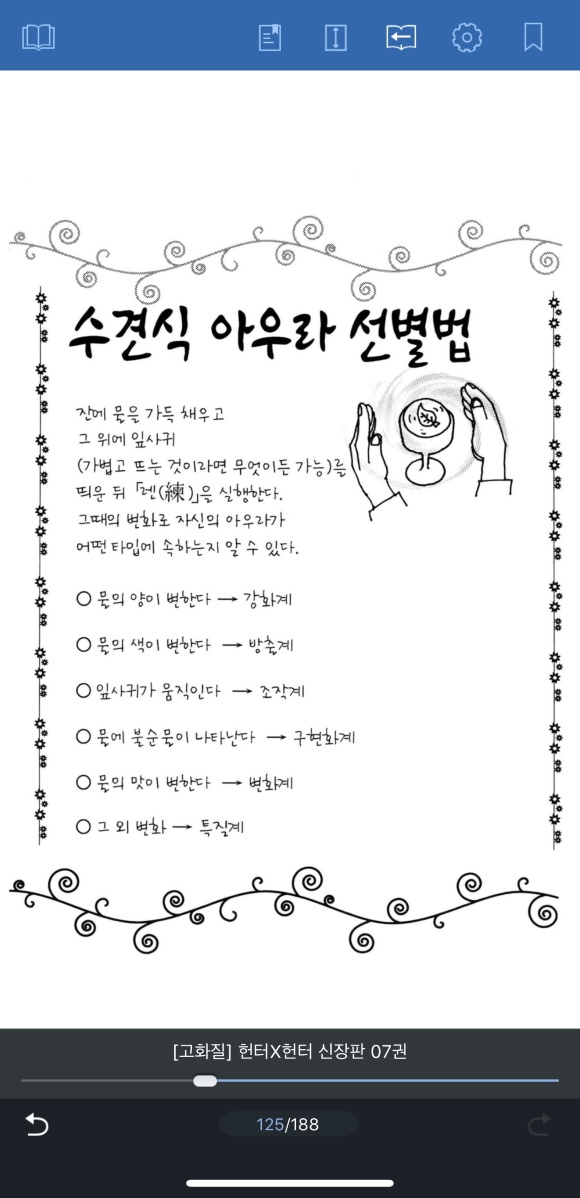 수견식 아우라 선별법
잔에 물을 가득 채우고
그 위에 잎사귀
(가볍고 뜨는 것이라면 무엇이든 가능)를
띄운 뒤 「렌(練)」을 실행한다.
그때의 변화로 자신의 아우라가
어떤 타입에 속하는지 알 수 있다.
○ 물의 양이 변한다 → 강화계
○ 물의 색이 변한다 → 방출계
○ 잎사귀가 움직인다 → 조작계
○ 물에 불순물이 나타난다 → 구현화계
○ 물의 맛이 변한다 → 변화계
○ 그 외 변화 → 특질계
[고화질] 헌터X헌터 신장판 07권
125/188